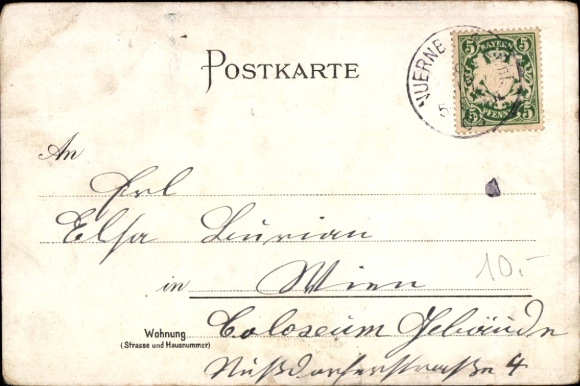 POSTKARTE
NUERNB
5 BAYERN 5
5 PFENNIG 5
An
Frl
Elsa Burian
in Wien
10.-
Wohnung Coloseum Gebäude
(Strasse und Hausnummer)
Nußdorferstraße 4